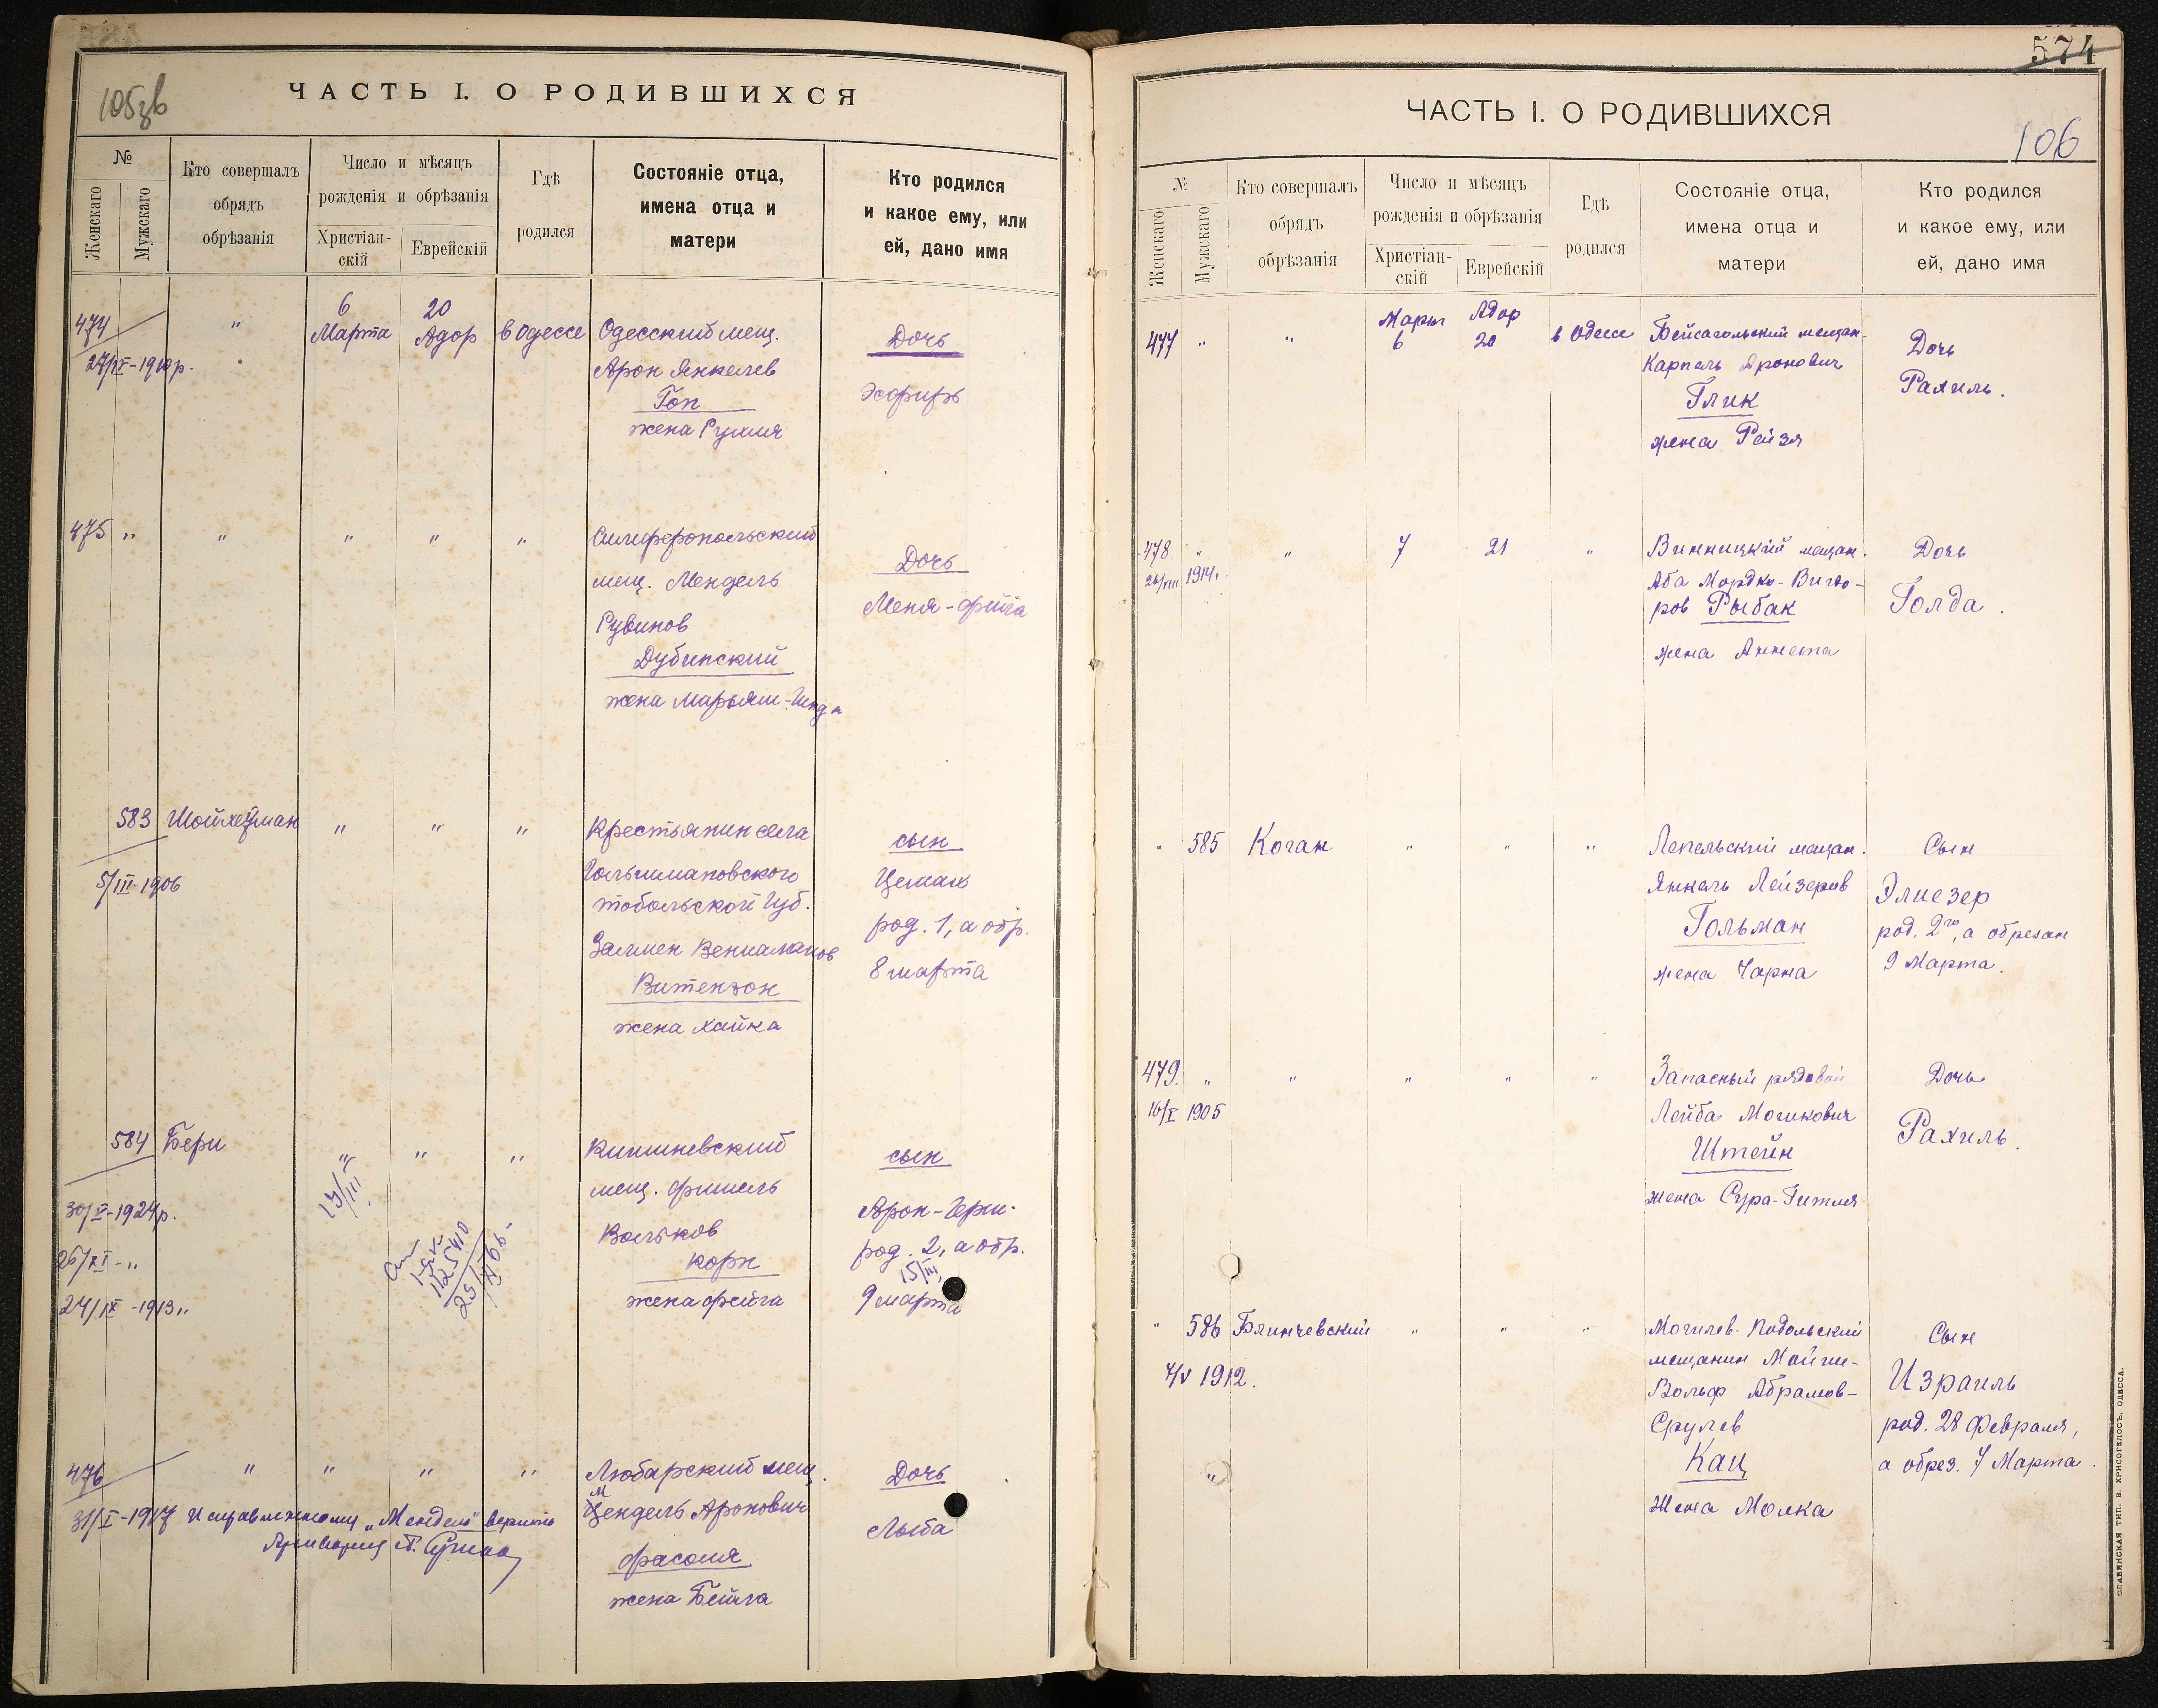 105зв
ЧАСТЬ I. О РОДИВШИХСЯ
№
Женскаго
Мужскаго
Кто совершалъ
обрядъ
обрѣзанія
Число и мѣсяцъ
рожденія и обрѣзанія
Христіан-
скій
Еврейскій
Гдѣ
родился
Состояніе отца,
имена отца и
матери
Кто родился
и какое ему, или
ей, дано имя
474
27/IX-1910 р.
"
6
Марта
20
Адор
в Одессе
Одесский мещ.
Арон Янкелев
Гоп
жена Рухля
Дочь
Эсфирь
475 "
"
"
"
"
Симферопольский
мещ. Мендель
Рувинов
Дубинский
жена Марьям-Гинда
Дочь
Меня-Фейга
583
5/III-1906
Шойхетман
"
"
"
Крестьянин села
Голышмановского
Тобольской Губ.
Залмен Вениаминов
Витензон
жена Хайка
сын
Цемах
род. 1, а обр.
8 марта
584
30/V-1924 р.
26/XI-"
24/IX-1913 "
Бери
"
15/III
"
"
125410
Кишиневский
мещ. Фишель
Вольков
Корн
жена Фейга
сын
Арон-Герш.
род. 2, а обр.
15/III
9 марта
476
31/I-1917
"
"
"
"
Исправленному „Мендель" верить
Любарский мещ.
М
Цендель Аронович
Фасоля
жена Бейла
Дочь
Лыба
574
ЧАСТЬ I. О РОДИВШИХСЯ
106
№
Женскаго
Мужскаго
Кто совершалъ
обрядъ
обрѣзанія
Число и мѣсяцъ
рожденія и обрѣзанія
Христіан-
скій
Еврейскій
Гдѣ
родился
Состояніе отца,
имена отца и
матери
Кто родился
и какое ему, или
ей, дано имя
477 "
"
Март
6
Адор
20
в Одессе
Бейсагольский мещан.
Карпель Аронович
Глик
жена Рейзя
Дочь
Рахиль.
478 "
26/VIII 1914 г.
"
7
21
"
Винницкий мещан.
Аба Мордко-Вигдо-
ров Рыбак
жена Аннета
Дочь
Голда.
" 585
Коган
"
"
"
Лепельский мещан.
Янкель Лейзеров
Гольман
жена Чарна
Сын
Элиезер
род. 2го, а обрезан
9 Марта.
479. "
16/I 1905
"
"
"
"
Запасный рядовой
Лейба Мошкович
Штейн
жена Сура-Гитля
Дочь
Рахиль.
" 586
4/V 1912.
Блинчевский
"
"
"
Могилев-Подольский
мещанин Мойше-
Вольф Абрамов-
Срулев
Кац
жена Молка
Сын
Израиль
род. 28 Февраля,
а обрез. 7 Марта.
"
СЛАВЯНСКАЯ ТИП. В. ХРИСОГЕЛОСЪ, ОДЕССА.